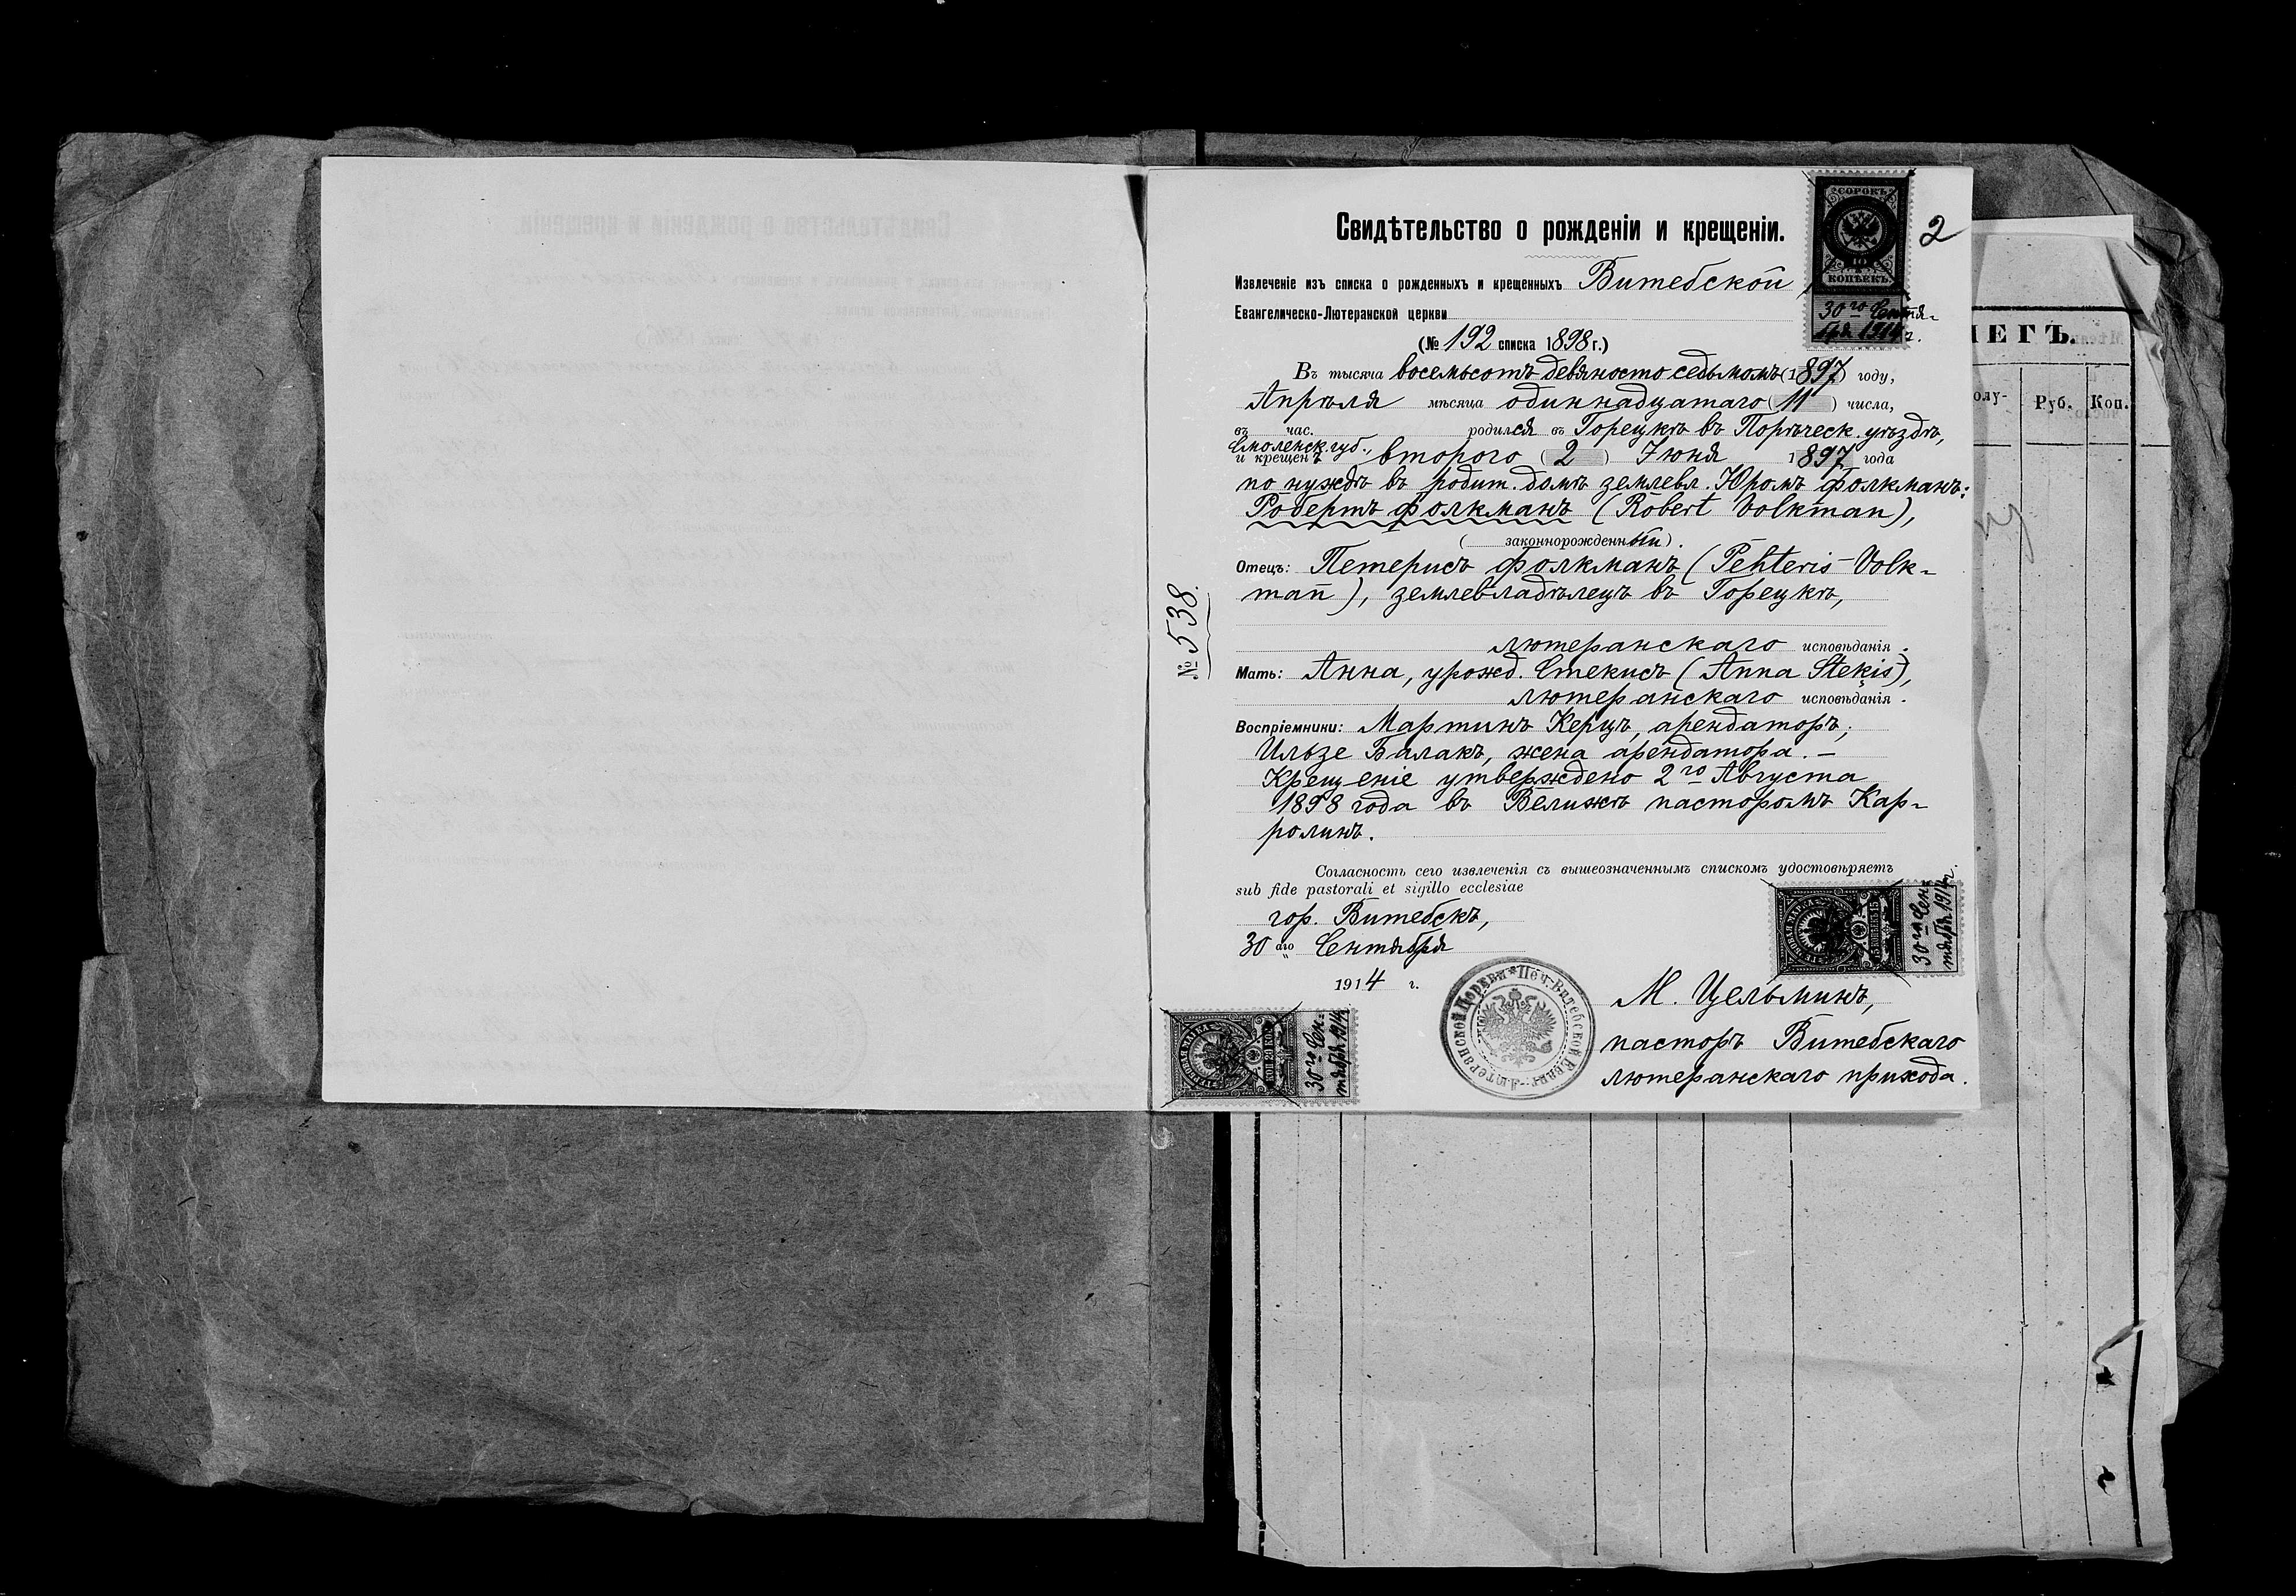 Свидѣтельство о рожденіи и крещеніи.
2
СОРОКЪ
40
КОПѢЕКЪ
30го Сентя-
бря 1914 г.
Извлеченіе изъ списка о рожденныхъ и крещенныхъ Витебской
Евангелическо-Лютеранской церкви
(№ 192 списка 1898 г.)
Въ тысяча восемьсотъ девяносто седьмомъ (1897) году,
Апрѣля мѣсяца одиннадцатаго (11) числа,
въ час. родился въ Горецкѣ въ Порѣческ. уѣздѣ,
Смоленск. губ.,
и крещенъ второго (2) Іюня 1897 года
по нуждѣ въ родит. домѣ землевл. Юромъ Фолкманъ:
Робертъ Фолкманъ (Robert Volkman),
(законнорожденный).
Отецъ: Петерисъ Фолкманъ (Pehteris Volk-
man), землевладѣлецъ въ Горецкѣ,
лютеранскаго исповѣданія.
Мать: Анна, урожд. Стекисъ (Anna Steķis),
лютеранскаго исповѣданія.
Воспріемники: Мартинъ Керцъ, арендаторъ;
Ильзе Балакъ, жена арендатора. —
Крещеніе утверждено 2го Августа
1898 года въ Велижѣ пасторомъ Кар-
ролинъ.
№ 538.
Согласность сего извлеченія съ вышеозначеннымъ спискомъ удостовѣряетъ
sub fide pastorali et sigillo ecclesiae
гор. Витебскъ,
30аго Сентября
1914 г.
30го Сен-
тября 1914 г.
30го Сен-
тября 1914
М. Цельминъ,
пасторъ Витебскаго
лютеранскаго прихода.
Печ. Витебской Еванг.-Лютеранской Церкви
ЕГЪ.
Руб. Коп.